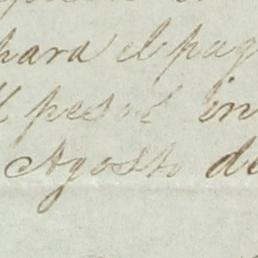 para el pag
pesos in
Agosto de